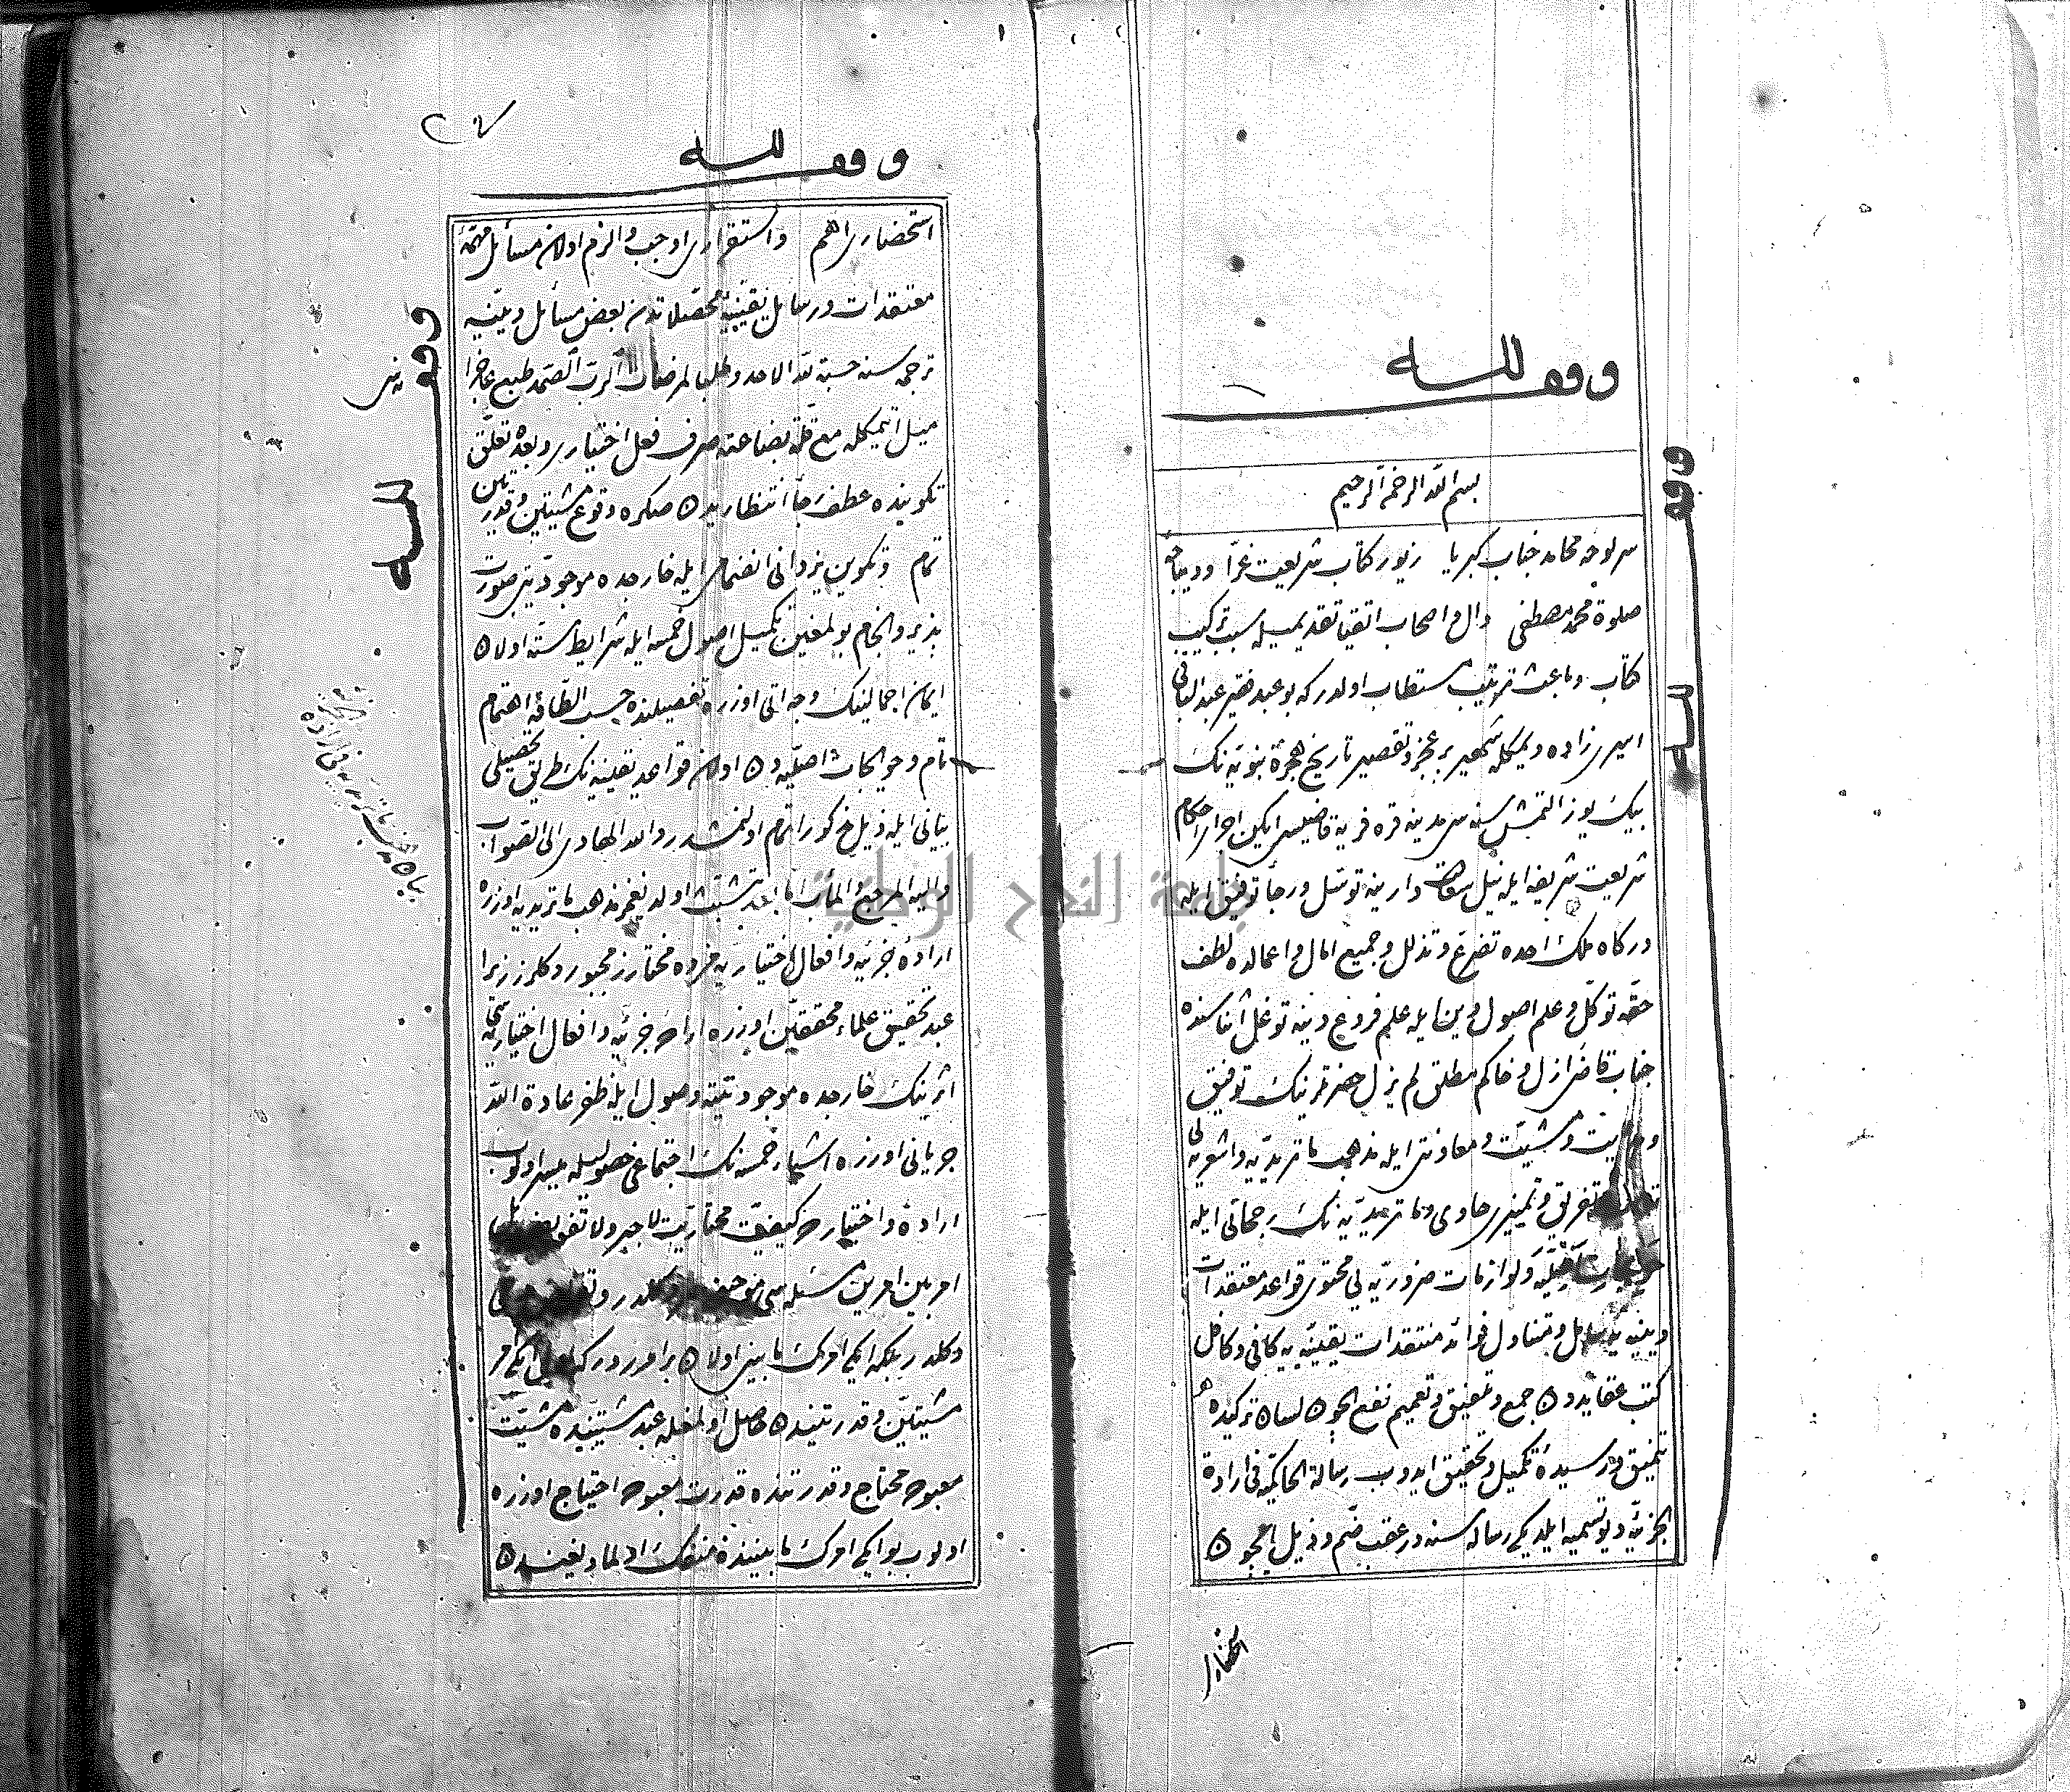 وقف لله
وقف
لله
بسم الله الرحمن الرحيم
سرلوحه محامد جناب كبريا زيور كتاب شريعت غرا وديباجه
صلوة محمد مصطفى وال واصحاب اتقيا تقديميله سبب تركيب
كتاب وباعث ترتيب مستطاب اولدركه بو عبد فقير عبد الباقى
اسيرى زاده ديمكله شهير پر عجز وتقصير تاريخ هجرة نبويه نك
بيك يوز التمش سنه سى مدينه قره فريه قاضيسى ايكن اجراى احكام
شريعت شريفه ايله نيل سعادت دارينه توسل ورجا توفيق ايله
دركاه ملك احده تضرع وتذلل وجميع امال واعمالده لطف
حقه توكل وعلم اصول دين ايله علم فروع دينه توغل اثناسنده
جناب قاضى ازل وحاكم مطلق لم يزل حضرتلرينك توفيق
ومشيت ومعاونتى ايله مذهب ماتريديه واشعريه لى
تفريق وتمييزى حاوى وماتريديه نك رجحانى ايله
اصليه ولوازمات ضروريه لى محتوى قواعد معتقدات
دينيه يه شامل ومتناول فوائد منتقدات يقينيه يه كافى وكافل
كتب عقايددن جمع وتلفيق وتعميم نفع ايچون لسان تركيده
تنميق ورسيدهٔ تكميل وتحقيق ايدوب رسالة الحاكميه فى ارادة
الجزئيه ديو تسميه ايلديكى رساله سنه درعقب ضم وذيل ايچون
استحضار
وقف لله
استحضارى اهم واستقرارى اوجب والزم اولان مسائل مهمهٔ
معتقدات ورسايل يقينيهٔ محصلاتدن بعض مسائل دينيه
ترجمه سنه حسبة لله الاحد وطلبا لمرضات الرب الصمد طبع عاجزا نه سى
ميل ايتميكله مع قلة بضاعته صرف فعل اختيارى وبعده تعلق
تكوينده عطف رجا انتظاريدن صكره وقوع مشيتين وقدرتين
تمام وتكوين يزدانى انضمامى ايله خارجده موجوديتى صورت
پذير وانجام بولمغين تكميل اصول خمسه ايله شرايط سته اولان
ايمان اجمالينك وجه اتى اوزره تفصيلنده حسب الطاقه اهتمام
تام وحوايجات اصليه دن اولان قواعد يقينيه نك طريق تحصيلى
بيانى ايله ذيل مذكور اتمام اولنمشدر والله الهادى الى الصواب
واليه المرجع والمأب اما بعد تشبث اولديغمز مذهب ماتريديه اوزره
ارادهٔ جزئيه وافعال اختياريه مزده مختارز مجبور دكلرز زيرا
عبد تحقيق علماء محققين اوزره ارادهٔ جزئيه وافعال اختياريه سى
اثرينك خارجده موجوديتنه وصول ايله ظفر عادة الله
جريانى اوزره اشياء خمسه نك اجتماعى حصوليله ميسر اولوب
اراده واختيارده كيفيت مختاريت لا جبر ولا تفويض بل
امر بين امرين مسئله سى
دكلدر بلكه ايكى امرك مابينى اولان بر امردر كه ايكى امر
مشيتين وقدرتيندن حاصل اولمغله عبد مشيتنده مشيت
معبوده محتاج وقدرتنده قدرت معبوده احتياج اوزره
اولوب بو ايكى امرك مابيننده منفك اولماديغندن
وقف
لله
جامعة النجاح الوطنية